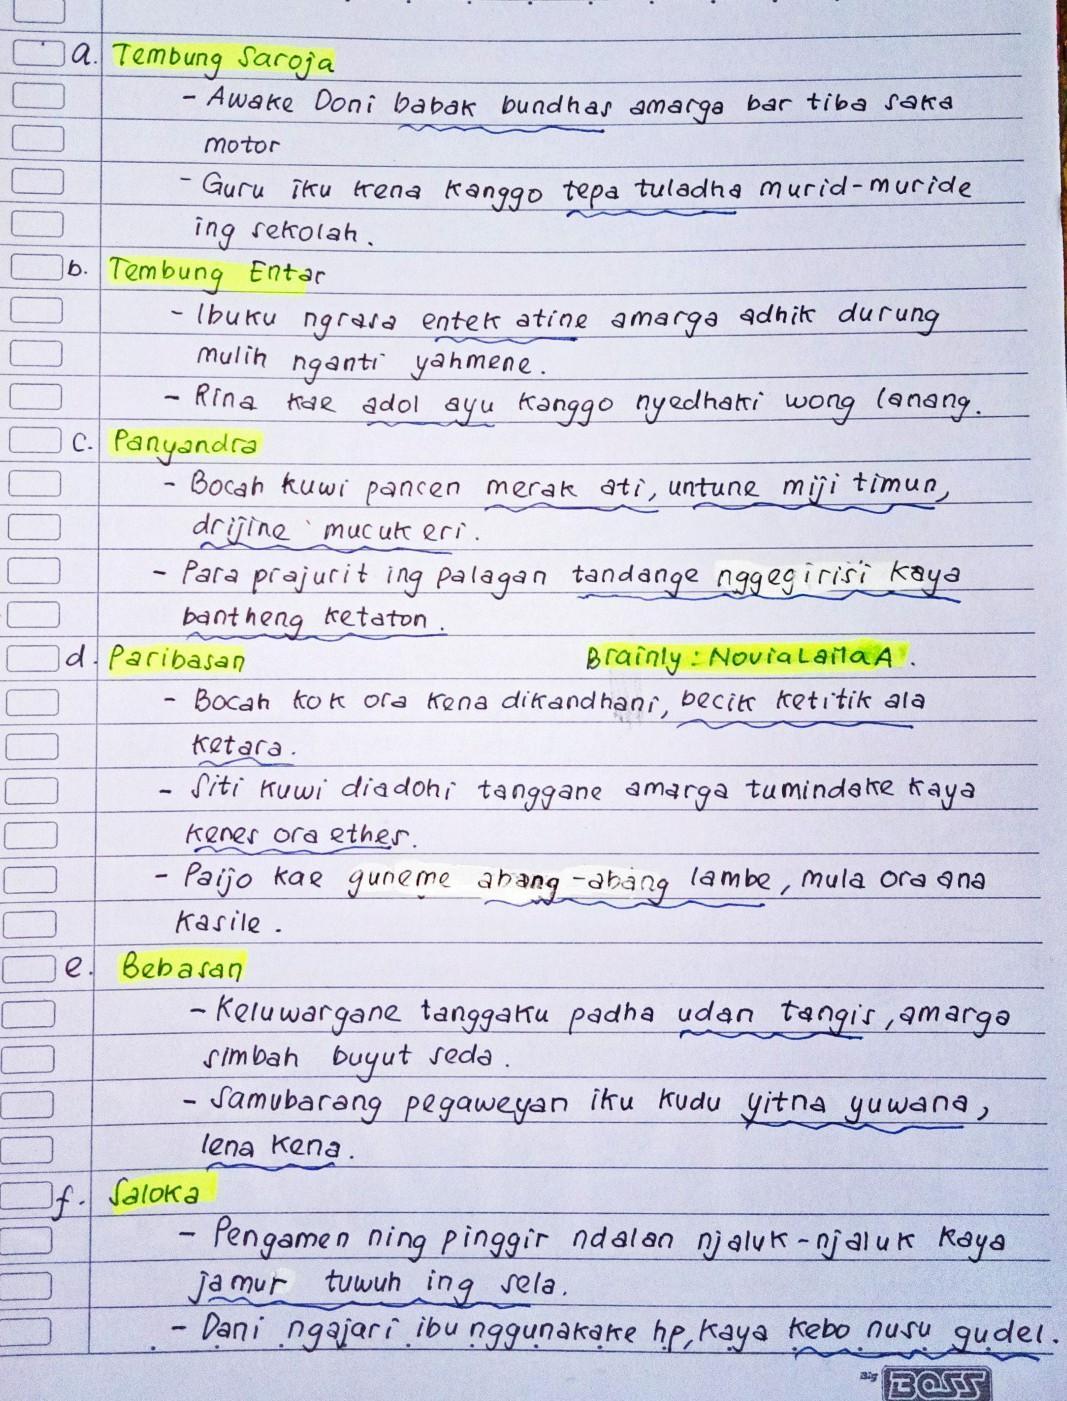 a. Tembung Saroja
- Awake Doni babak bundhas amarga bar tiba saka
motor
- Guru iku kena kanggo tepa tuladha murid-muride
ing sekolah.
b. Tembung Entar
- Ibuku ngrasa entek atine amarga adhik durung
mulih nganti yahmene.
- Rina kae adol ayu kanggo nyedhaki wong lanang.
c. Panyandra
- Bocah kuwi pancen merak ati, untune miji timun,
drijine mucuk eri.
- Para prajurit ing palagan tandange nggegirisi kaya
bantheng ketaton.
d. Paribasan Brainly : NoviaLailaA.
- Bocah kok ora kena dikandhani, becik ketitik ala
ketara.
- Siti kuwi diadohi tanggane amarga tumindake kaya
kenes ora ethes.
- Paijo kae guneme abang-abang lambe, mula ora ana
kasile.
e. Bebasan
- Keluwargane tanggaku padha udan tangis, amarga
simbah buyut seda.
- Samubarang pegaweyan iku kudu yitna yuwana,
lena kena.
f. Saloka
- Pengamen ning pinggir ndalan njaluk-njaluk kaya
jamur tuwuh ing sela.
- Dani ngajari ibu nggunakake hp, kaya kebo nusu gudel.
Big BOSS